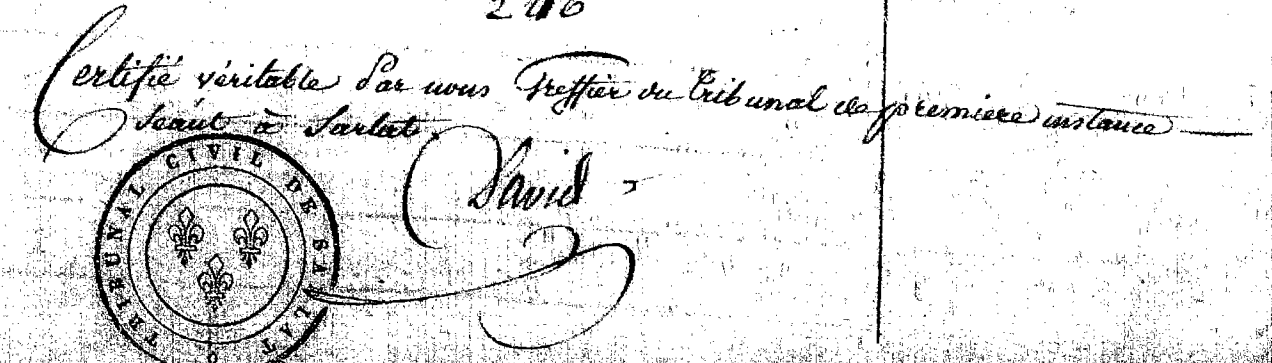 246
Certifié véritable Par nous Greffier du Tribunal de première instance
Séant à Sarlat.
David
TRIBUNAL CIVIL DE SARLAT